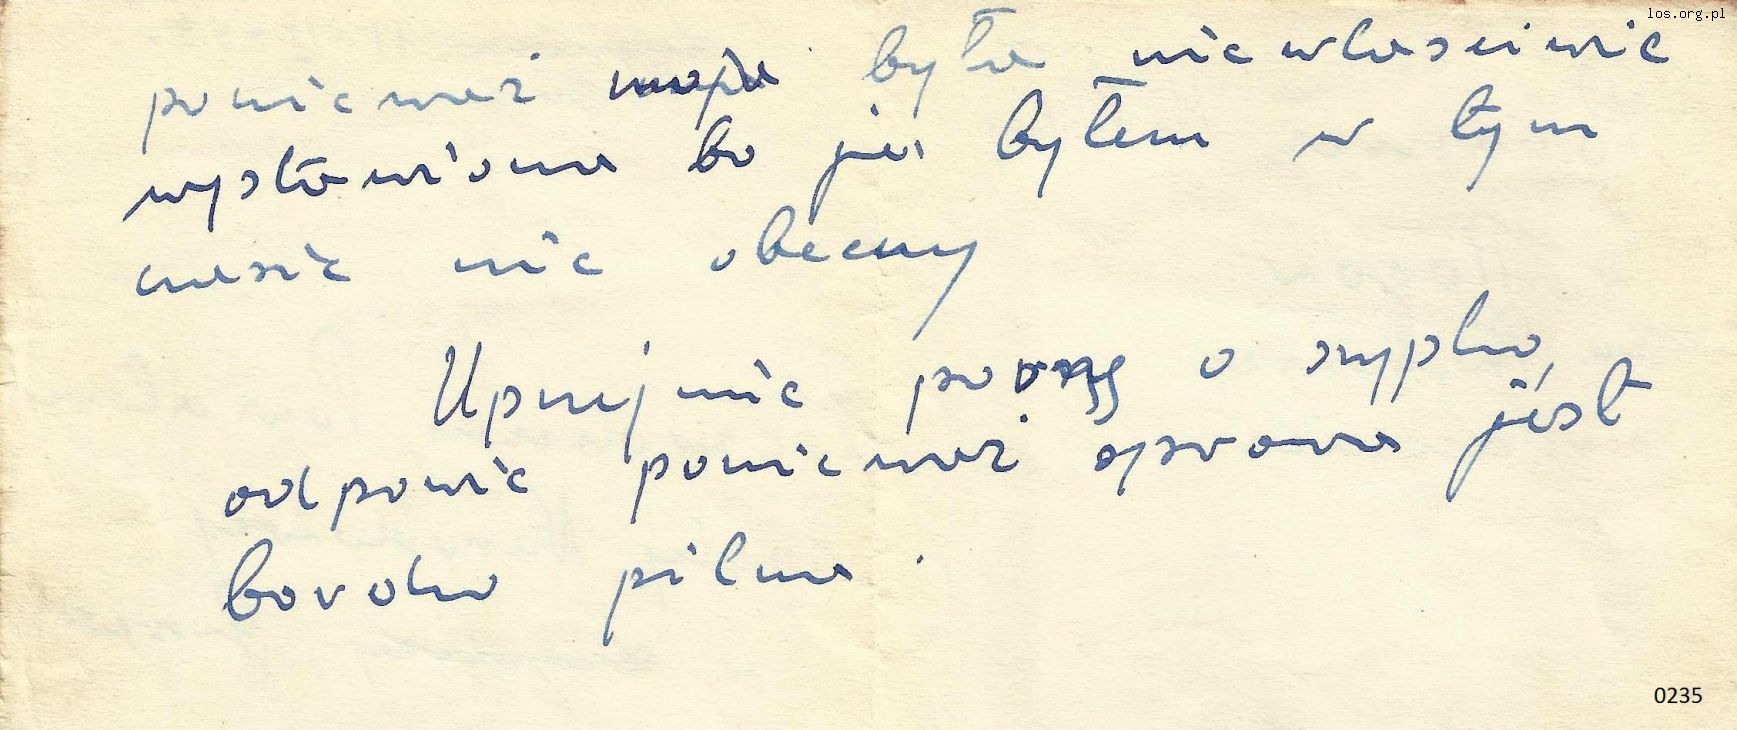 los.org.pl
ponieważ moja była niewłaściwie
wystawiona bo ja byłem w tym
czasie nie obecny
Uprzejmie proszę o szybką
odpowie ponieważ sprawa jest
bardzo pilna.
0235